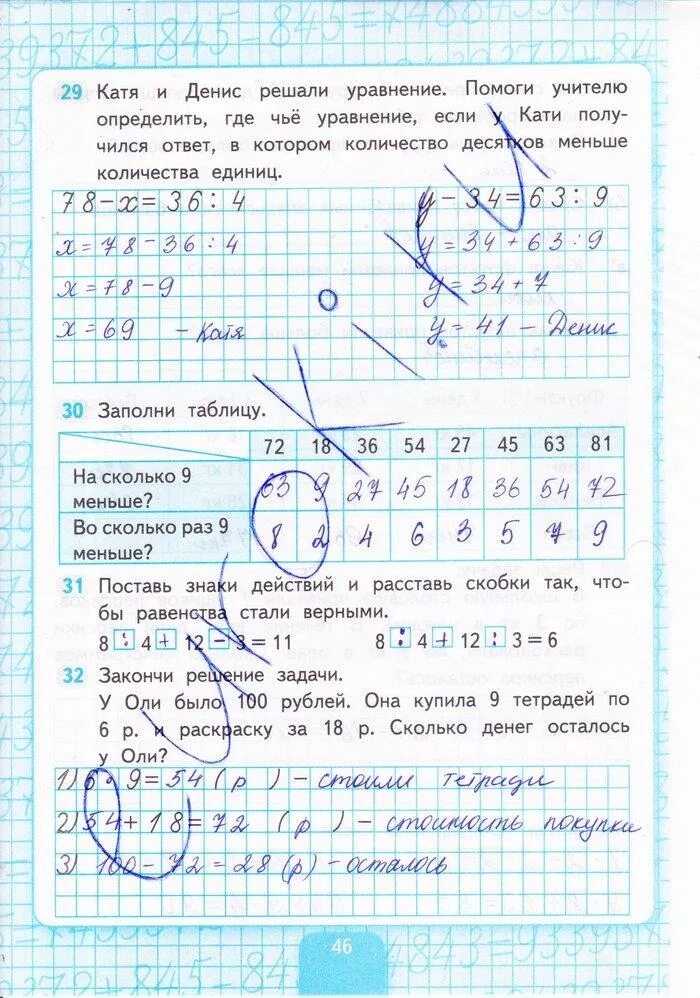 29 Катя и Денис решали уравнение. Помоги учителю
определить, где чьё уравнение, если у Кати полу-
чился ответ, в котором количество десятков меньше
количества единиц.
78-x=36:4 y-34=63:9
x=78-36:4 y=34+63:9
x=78-9 y=34+7
x=69 -Катя y=41 - Денис
30 Заполни таблицу.
72 18 36 54 27 45 63 81
На сколько 9 меньше? 63 9 27 45 18 36 54 72
Во сколько раз 9 меньше? 8 2 4 6 3 5 7 9
31 Поставь знаки действий и расставь скобки так, что-
бы равенства стали верными.
8 : 4 + 12 - 3 = 11 8 : 4 + 12 : 3 = 6
32 Закончи решение задачи.
У Оли было 100 рублей. Она купила 9 тетрадей по
6 р. и раскраску за 18 р. Сколько денег осталось
у Оли?
1) 6·9=54 (р ) - стоили тетради
2) 54+18=72 (р ) - стоимость покупки
3) 100-72=28 (р) - осталось
46